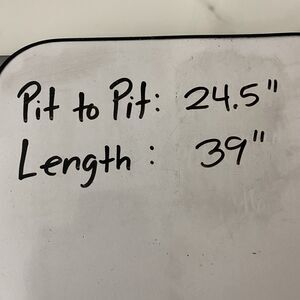 Pit to Pit: 24.5"
Length: 39"